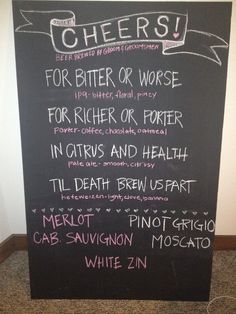 CHEERS!
BEER BREWED BY GROOM & GROOMSMEN
FOR BITTER OR WORSE
IPA - bitter, floral, piney
FOR RICHER OR PORTER
porter - coffee, chocolate, oatmeal
IN CITRUS AND HEALTH
pale ale - smooth, citrusy
TIL DEATH BREW US PART
hefeweizen - light, clove, banana
MERLOT
PINOT GRIGIO
CAB. SAUVIGNON
MOSCATO
WHITE ZIN